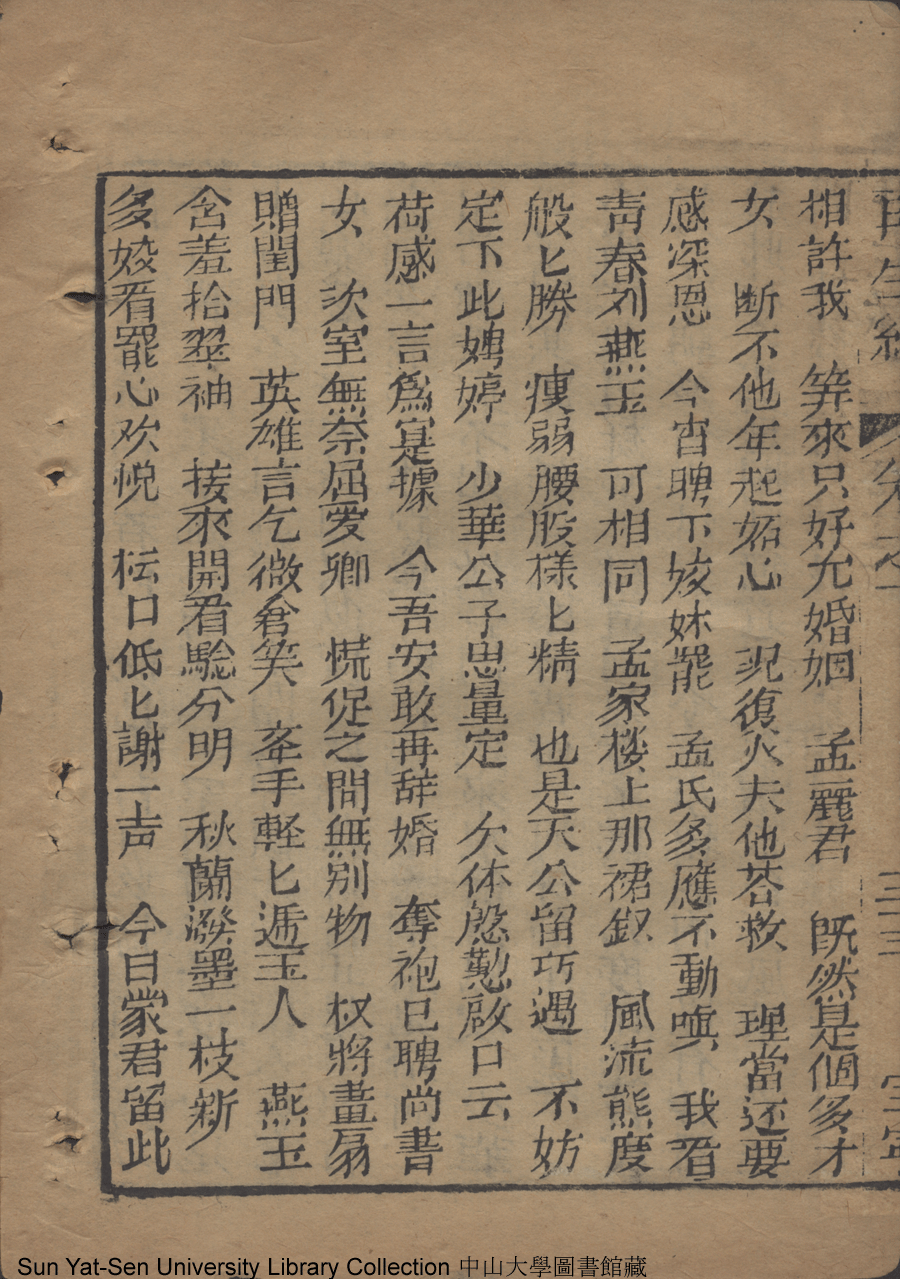 再生縁 卷之一 三十三 宝寧
相許我 筭來只好允婚姻 孟麗君 既然是個多才
女 断不他年起妬心 况復火夫他荅救 理當还要
感深恩 今宵聘下姣妹罷 孟氏多應不動嗔 我看
青春刘燕玉 可相同 孟家楼上那裙釵 風流態度
般匕勝 瘦弱腰肢樣匕精 也是天公留巧遇 不妨
定下此娉婷 少華公子思量定 欠体慇懃啟口云
荷感一言爲寔據 今吾安敢再辞婚 奪袍已聘尚書
女 次室無奈屈爱卿 慌促之間無别物 权將畫扇
贈閨門 英雄言乞微含笑 夲手軽匕遞玉人 燕玉
含羞拾翠袖 接來開看騐分明 秋蘭潑墨一枝新
多姣看罷心欢悦 枟口低匕謝一声 今日蒙君留此
Sun Yat-Sen University Library Collection 中山大學圖書館藏